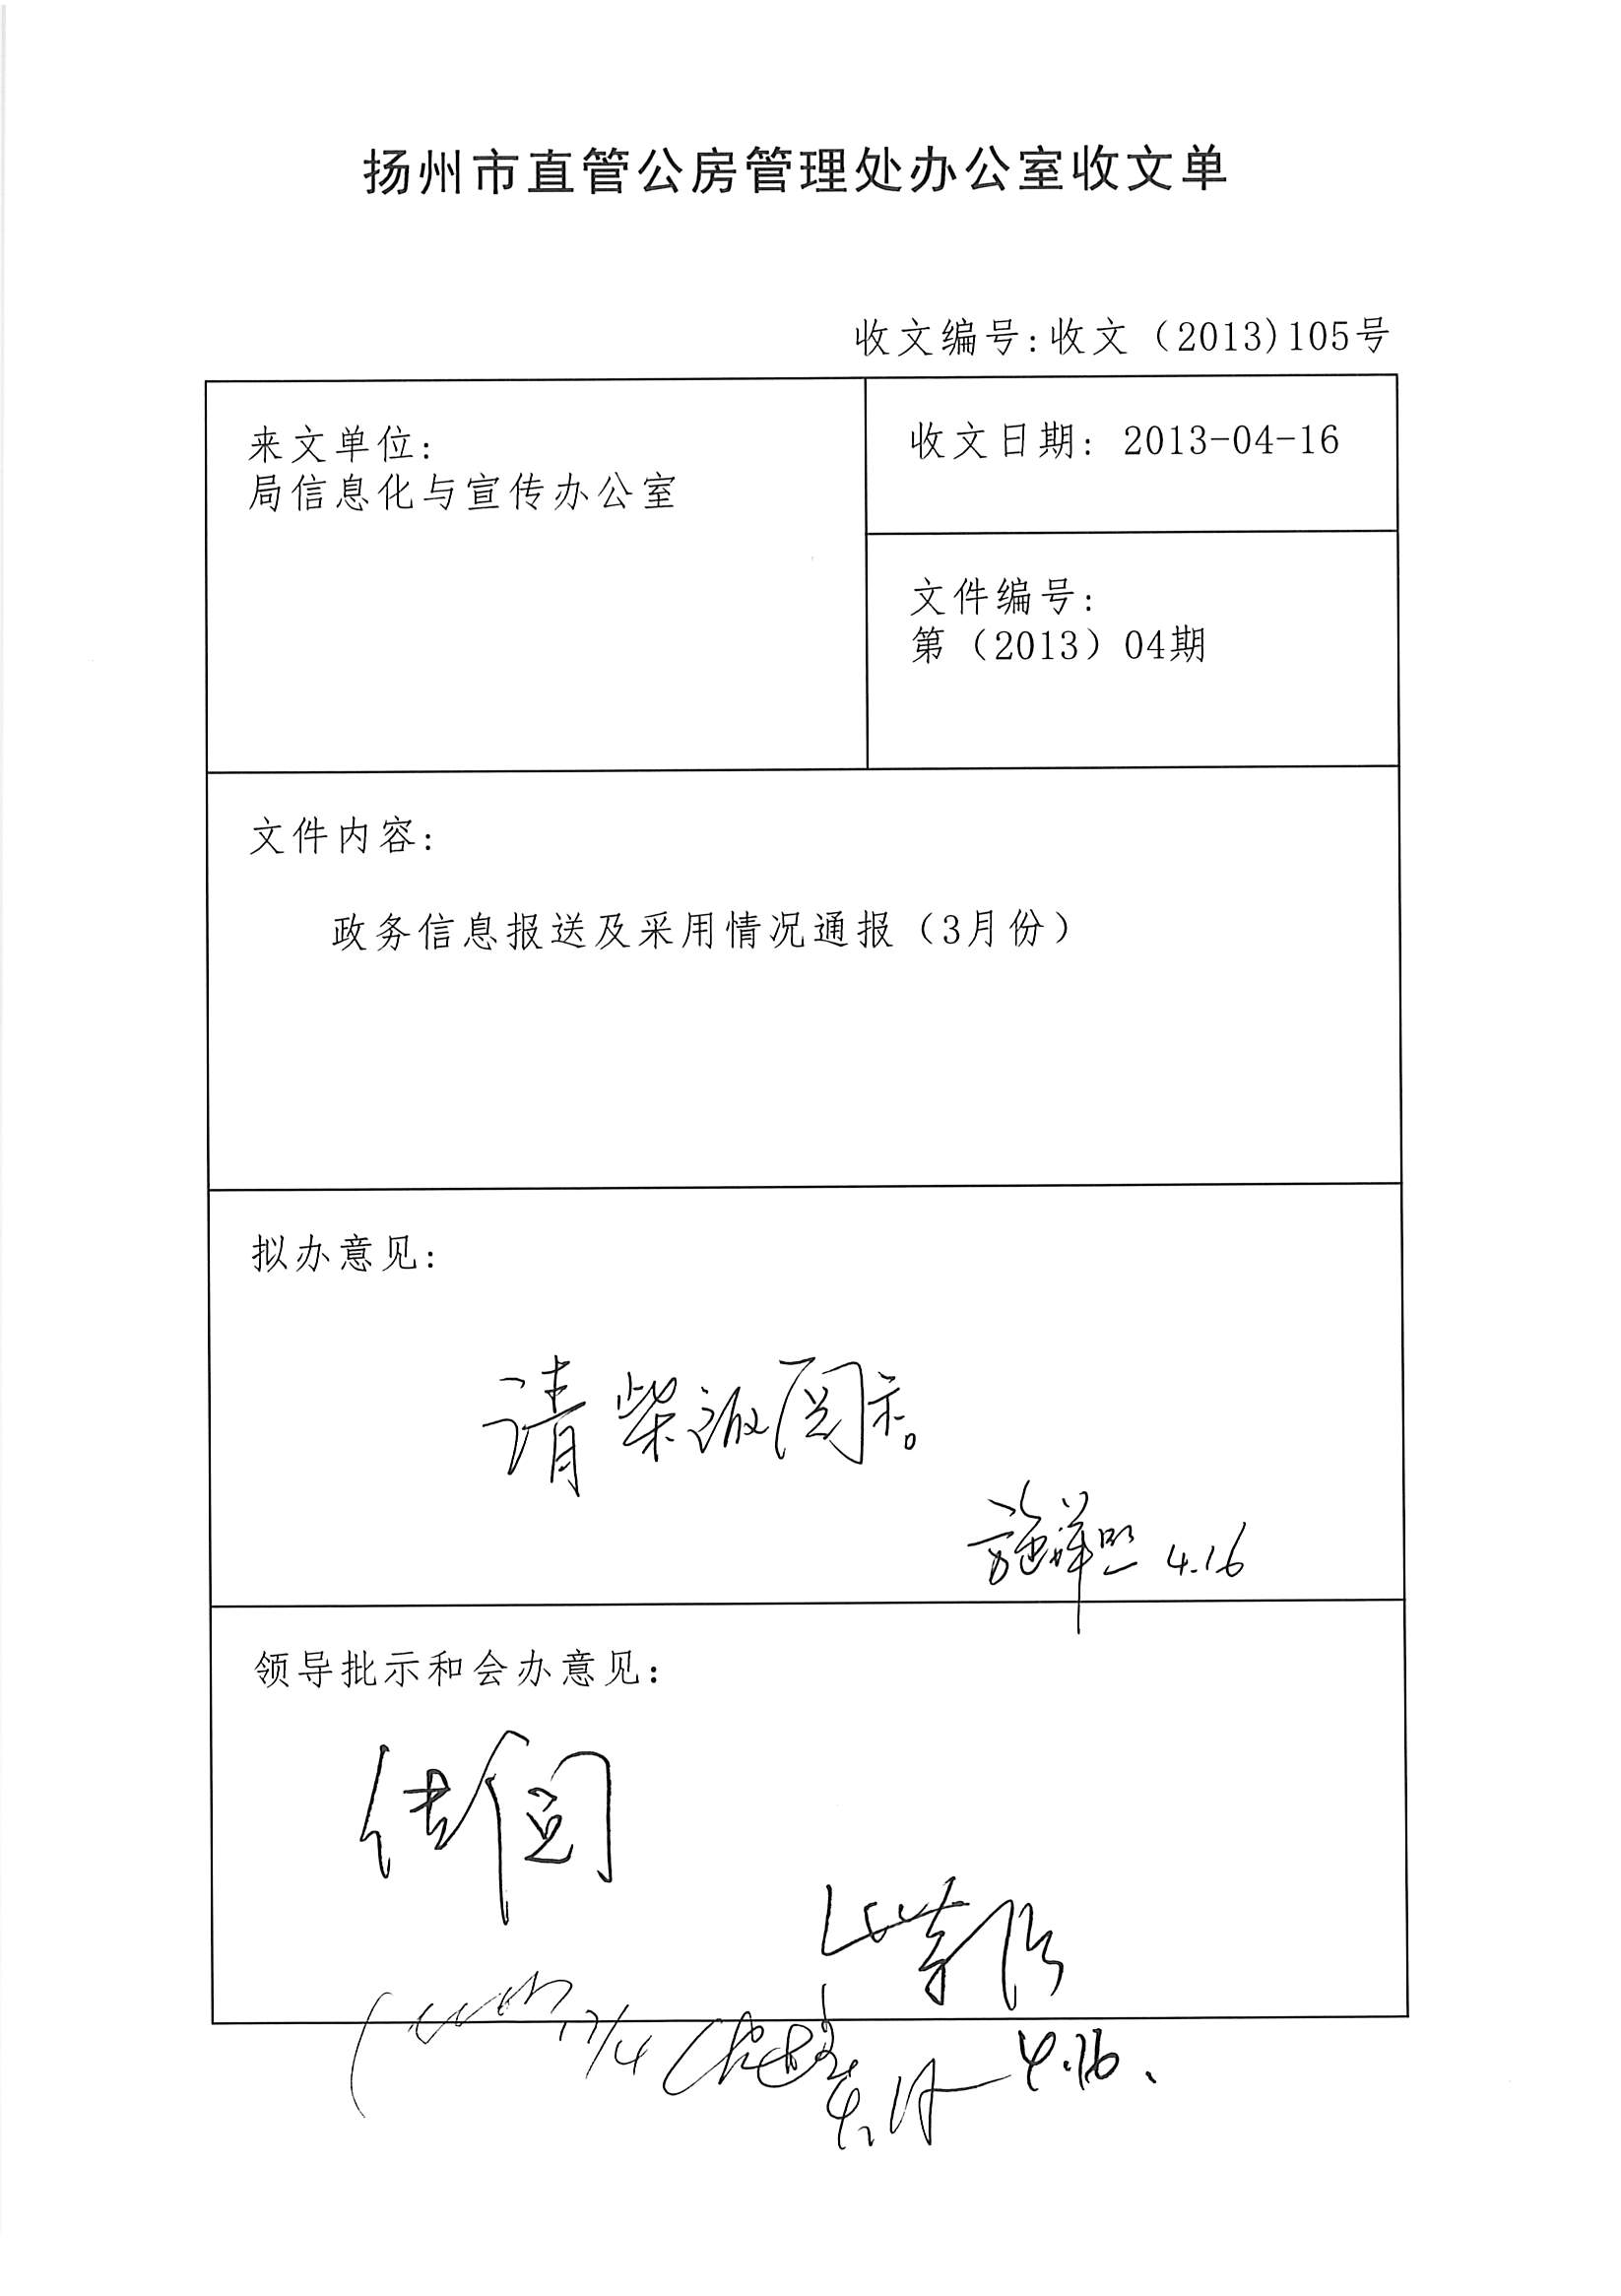 扬州市直管公房管理处办公室收文单
收文编号:收文（2013)105号
来文单位:
局信息化与宣传办公室
收文日期: 2013-04-16
文件编号:
第（2013）04期
文件内容:
政务信息报送及采用情况通报（3月份）
拟办意见:
请柴阅示。
施 4.16
领导批示和会办意见:
传阅
17/4
4.16.